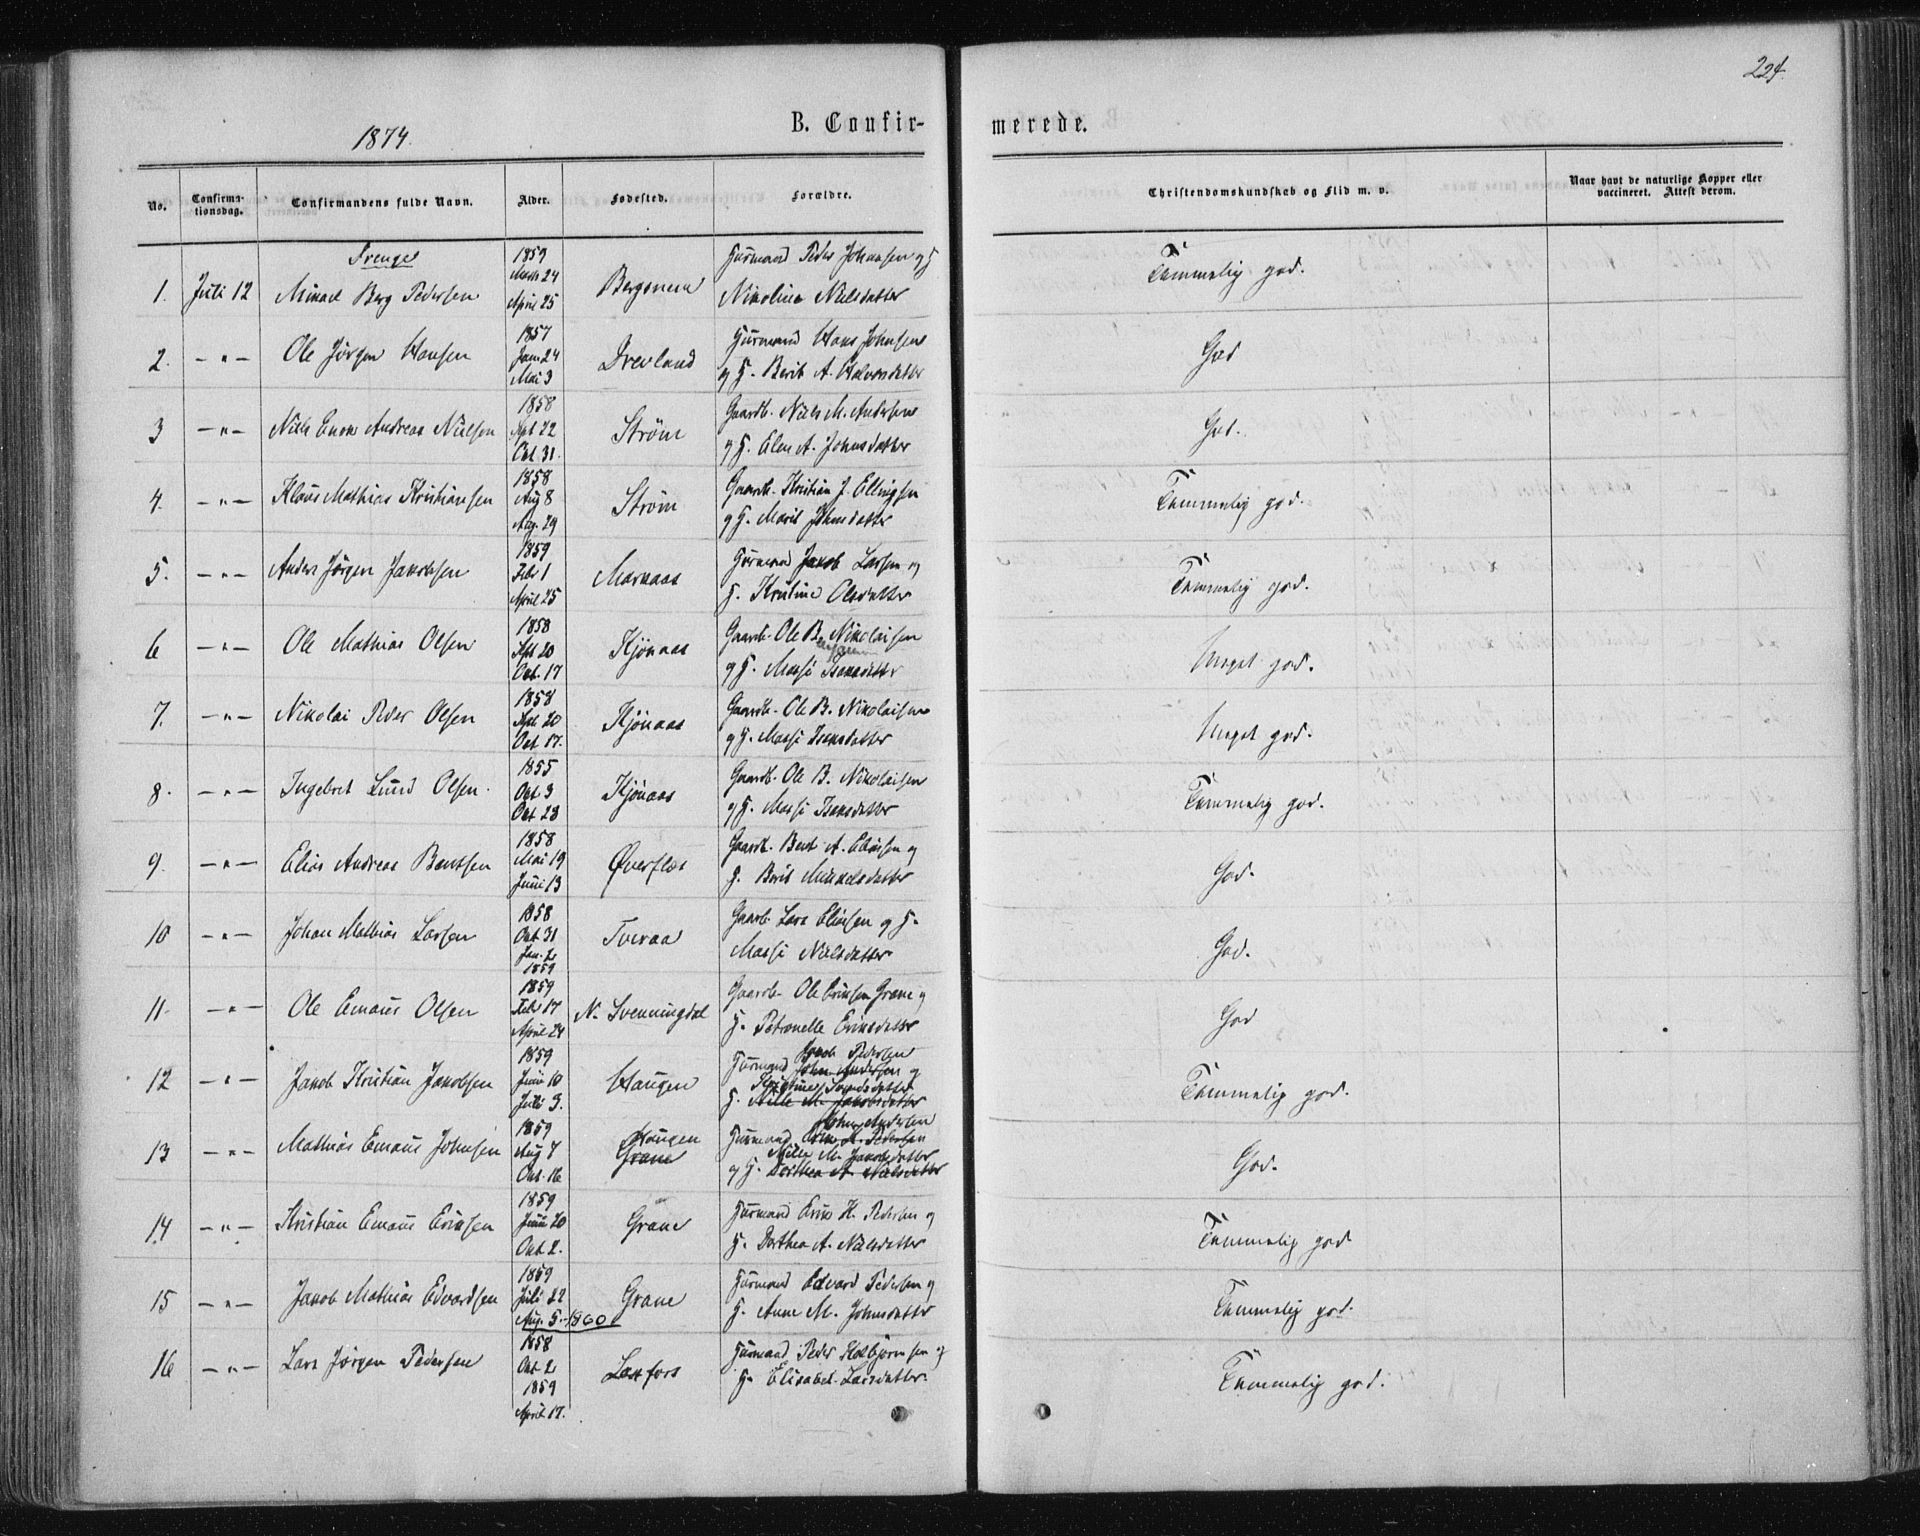 224.
1874.
B. Confir-
merede.
No.
Confirma-
tionsdag.
Confirmandens fulde Navn.
Alder.
Fødested.
Forældre.
Christendomskundskab og Flid m. v.
Naar havt de naturlige Kopper eller
vaccineret. Attest derom.
Drenge
1859
Marts 24
April 25
1. Juli 12 Mikael Berg Pedersen Bergsnem
Huusmand Peder Johansen og H
Nikolina Nielsdatter
Temmelig god.
1857
Jan 24
Mai 3
2. — " — Ole Jørgen Hansen Drevland
Huusmand Hans Johnsen
og H. Berit A. Halvorsdatter
God
1858
Spt 22
Oct 31.
3 — " — Niels Enok Andreas Nielsen Strøm
Gaardb. Niels M. Andersen
og H. Elen A. Johnsdatter
God.
1858
Aug 8
Aug. 29
4. — " — Klaus Mathias Kristiansen Strøm
Gaardb. Kristian J. Ellingsen
og H. Marit Johnsdatter
Temmelig god.
1859
Febr 1
April 25
5. — " — Anders Jørgen Jakobsen Marnaas
Huusmand Jakob Larsen og
H. Kristine Olsdatter
Temmelig god.
1858
Spt 20
Oct. 17
6 — " — Ole Mathias Olsen Kjønaas
Gaardb. Ole B. Nikolaisen
og H. Massi Isaksdatter
Meget god.
1858
Spt 20
Oct 17.
7. — " — Nikolai Peder Olsen Kjønaas
Gaardb. Ole B. Nikolaisen
og H. Massi Isaksdatter
Meget god.
1855
Oct 3
Oct 23
8. — " — Ingebret Lund Olsen. Kjønaas
Gaardb. Ole B. Nikolaisen
og H. Massi Isaksdatter
Temmelig god.
1858
Mai 19
Juni 13
9. — " — Elias Andreas Bentsen Øverflos
Gaardb. Bent A. Eliasen og
H. Berit Mikkelsdatter
God.
1858
Oct 31
Jan. 2
1859
10 — " — Johan Mathias Larsen Tveraa
Gaardb. Lars Eliasen og H.
Massi Nielsdatter
God.
1859
Febr 17
April 24
11. — " — Ole Emaus Olsen N. Svenningdal
Gaardb. Ole Eriksen Grane og
H. Petronelle Eriksdatter
God
1859
Juni 10
Juli 3.
12 — " — Jakob Kristian Jakobsen Haugen
Jakob Pedersen
Huusmand John Andersen og
Kristine
H. Mille M. Jakobsdatter
Temmelig god.
1859
Aug 7
Oct. 16
13 — " — Mathias Emaus Johnsen Haugen
Grane
John Andersen
Huusmand Erik H. Pedersen
Mille M. Jakobsdatter
og H. Dorthea A. Nielsdatter
God.
1859
Juni 20
Oct 2.
14 — " — Kristian Emaus Eriksen Grane
Huusmand Erik H. Pedersen og
H. Dorthea A. Nielsdatter
Temmelig god
1859
Juli 22
Aug. 5. 1860
15 — " — Jakob Mathias Edvardsen Grane
Huusmand Edvard Pedersen og
H. Anne M. Johnsdatter
Temmelig god.
1858
Oct. 2
1859
April 17.
16 — " — Lars Jørgen Pedersen Laxfors
Huusmand Peder Kolbjørnsen og
H. Elisabet Larsdatter.
Temmelig god.